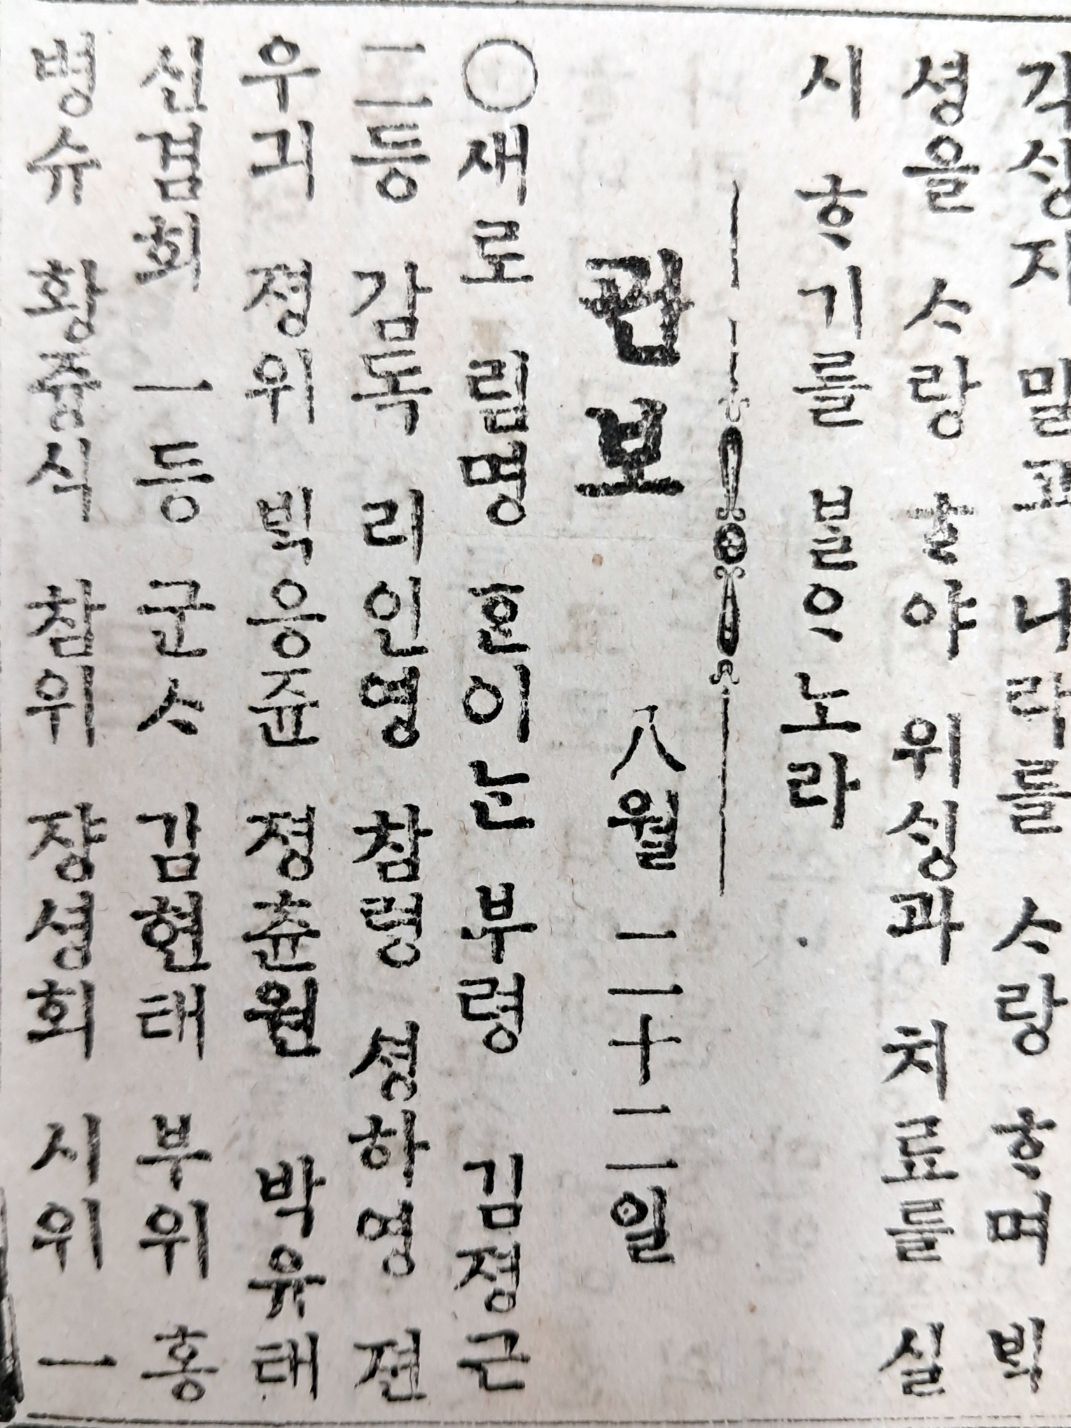 각ᄉᆡᆼ지 말고 나라를 ᄉᆞ랑 ᄒᆞ며 ᄇᆡᆨ
셩을 ᄉᆞ랑 ᄒᆞ야 위ᄉᆡᆼ과 치료를 실
시 ᄒᆞ기를 ᄇᆞᆯᄋᆞ노라
관보 八월 二十二일
○새로 림명 ᄒᆞᆫ이ᄂᆞᆫ 부령 김졍근
二등 감독 리인영 참령 셩하영 젼
우긔 졍위 ᄇᆡᆨ응쥰 졍츈원 박유태
신겸희 一등 군ᄉᆞ 김현태 부위 홍
병슈 황즁식 참위 쟝셩희 시위 一